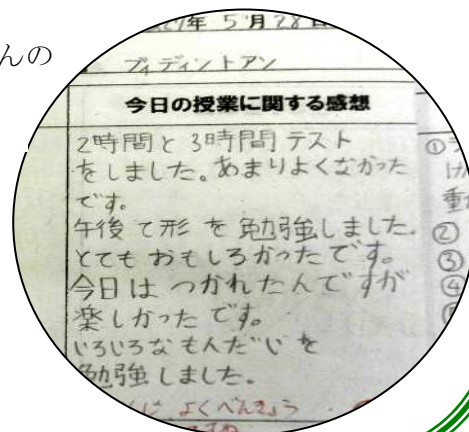 んの
年 5月28日
ブイディントアン
今日の授業に関する感想
2時間と3時間テスト
をしました。あまりよくなかった
です。
午後て形を勉強しました。
とてもおもしろかったです。
今日はつかれたんですが
楽しかったです。
いろいろなもんだいを
勉強しました。
よくべんきょう
①
②
③
④